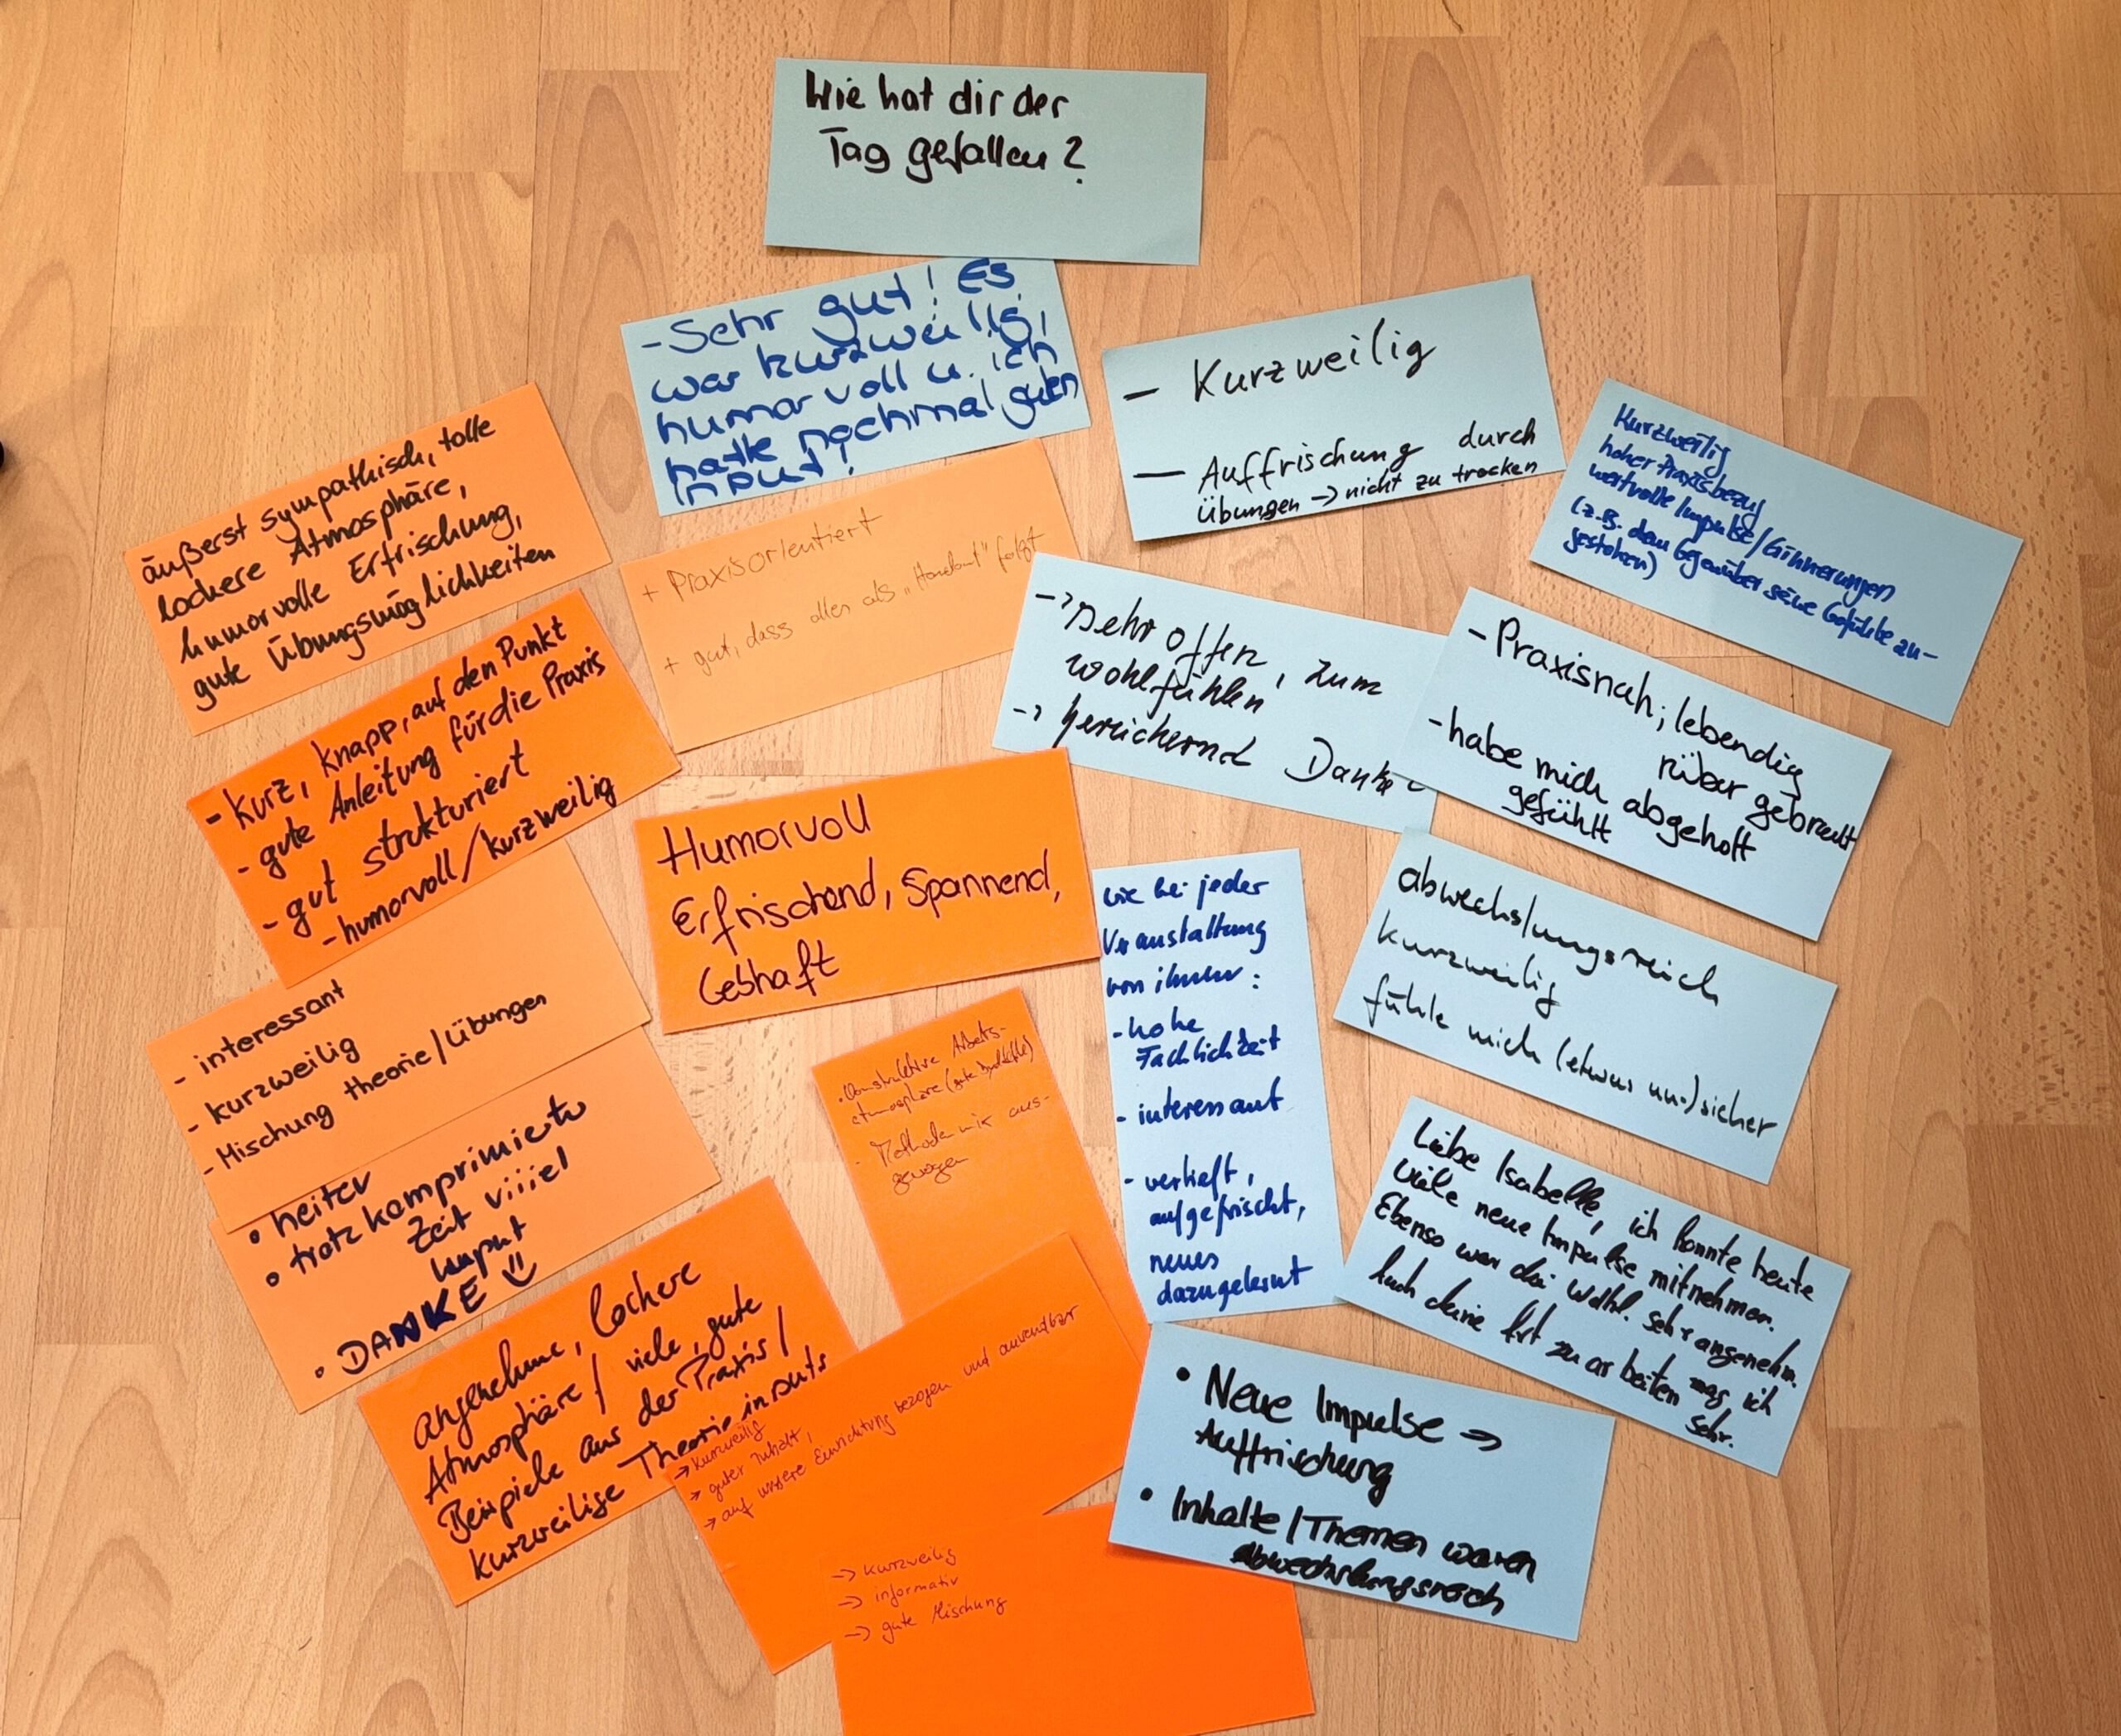 Wie hat dir der
Tag gefallen?
- Sehr gut! Es
war kurzweilig,
humorvoll u. ich
hatte nochmal guten
Input!
- Kurzweilig
- Auffrischung durch
Übungen → nicht zu trocken
Kurzweilig
hoher Praxisbezug
wertvolle Impulse/Erinnerungen
(z.B. dem Gegenüber seine Gefühle zu-
gestehen)
äußerst sympathisch, tolle
lockere Atmosphäre,
humorvolle Erfrischung,
gute Übungsmöglichkeiten
+ Praxisorientiert
+ gut, dass alles als „Handout" folgt
→ Sehr offen, zum
wohlfühlen
→ bereichernd Danke
- Praxisnah; lebendig
rüber gebracht
- habe mich abgeholt
gefühlt
- kurz, knapp, auf den Punkt
- gute Anleitung für die Praxis
- gut strukturiert
- humorvoll/kurzweilig
Humorvoll
Erfrischend, Spannend,
Lebhaft
wie bei jeder
Veranstaltung
von ihnen:
- hohe
Fachlichkeit
- interessant
- vertieft,
aufgefrischt,
neues
dazugelernt
abwechslungsreich
kurzweilig
fühle mich (etwas un-)sicher
- interessant
- kurzweilig
- Mischung theorie/Übungen
• heiter
• trotz komprimierter
Zeit viiiel
Imput
• DANKE
• konstruktive Arbeits-
atmosphäre (gute
• Methodenmix aus-
gewogen
Liebe Isabelle, ich konnte heute
viele neue Impulse mitnehmen.
Ebenso war die Wdhl. sehr angenehm.
Auch deine Art zu arbeiten mag ich
sehr.
angenehme, lockere
Atmosphäre / viele, gute
Beispiele aus der Praxis /
kurzweilige Theorieinputs
→ kurzweilig
→ guter Inhalt,
→ auf unsere Einrichtung bezogen und anwendbar
• Neue Impulse →
Auffrischung
• Inhalte/Themen waren
abwechslungsreich
→ kurzweilig
→ informativ
→ gute Mischung